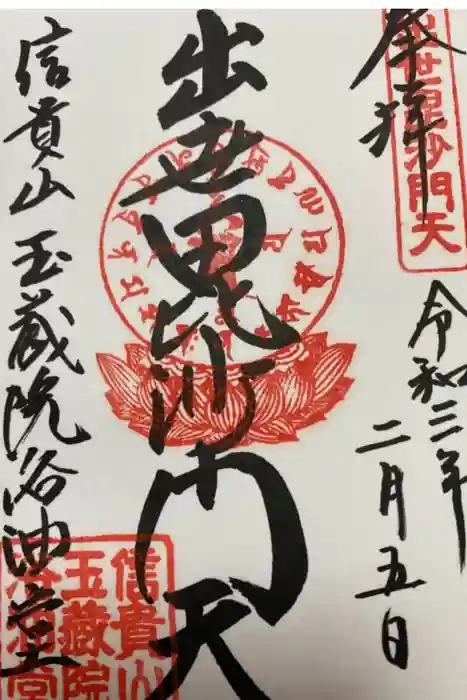 奉拝
出世毘沙門天
令和三年
二月五日
出世毘沙門天
信貴山玉蔵院浴油堂
信貴山
玉蔵院
浴油堂